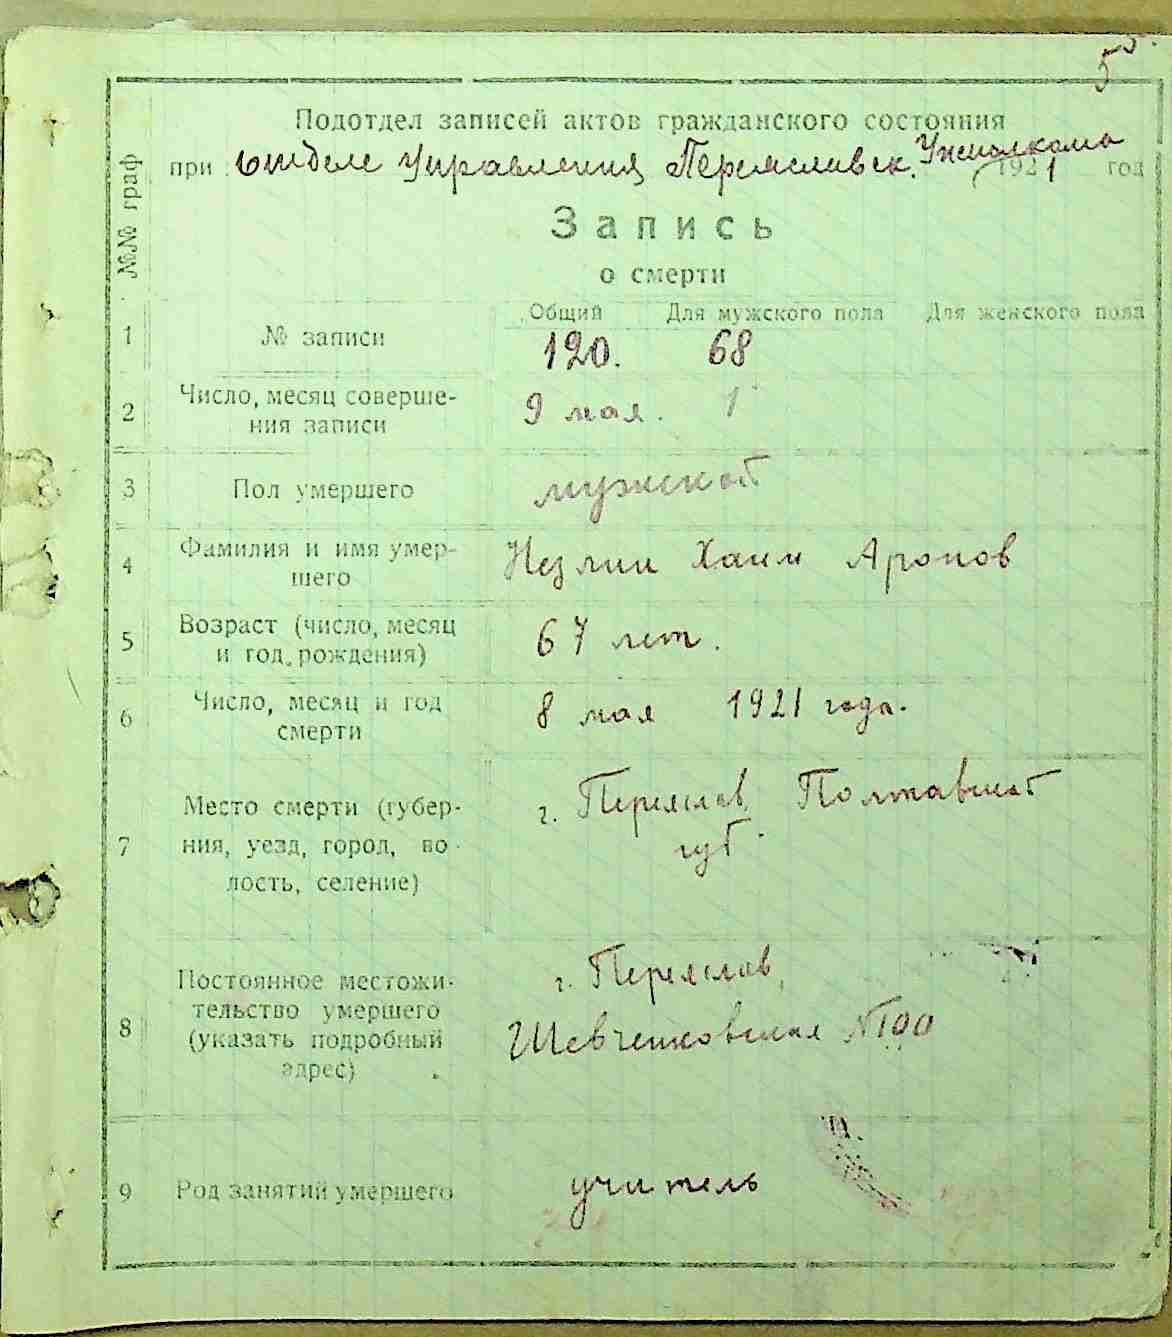 5
Подотдел записей актов гражданского состояния
при отделе Управления Переяславск. Уисполкома 1921 год
№№ граф
Запись
о смерти
Общий Для мужского пола Для женского пола
1 № записи 120. 68
2 Число, месяц соверше-
ния записи 9 мая.
3 Пол умершего мужской
4 Фамилия и имя умер-
шего Незлин Хаим Аронов
5 Возраст (число, месяц
и год рождения) 67 лет.
6 Число, месяц и год
смерти 8 мая 1921 года.
7 Место смерти (губер-
ния, уезд, город, во-
лость, селение) г. Переяслав, Полтавской
губ.
8 Постоянное местожи-
тельство умершего
(указать подробный
адрес) г. Переяслав,
Шевченковская №100
9 Род занятий умершего учитель